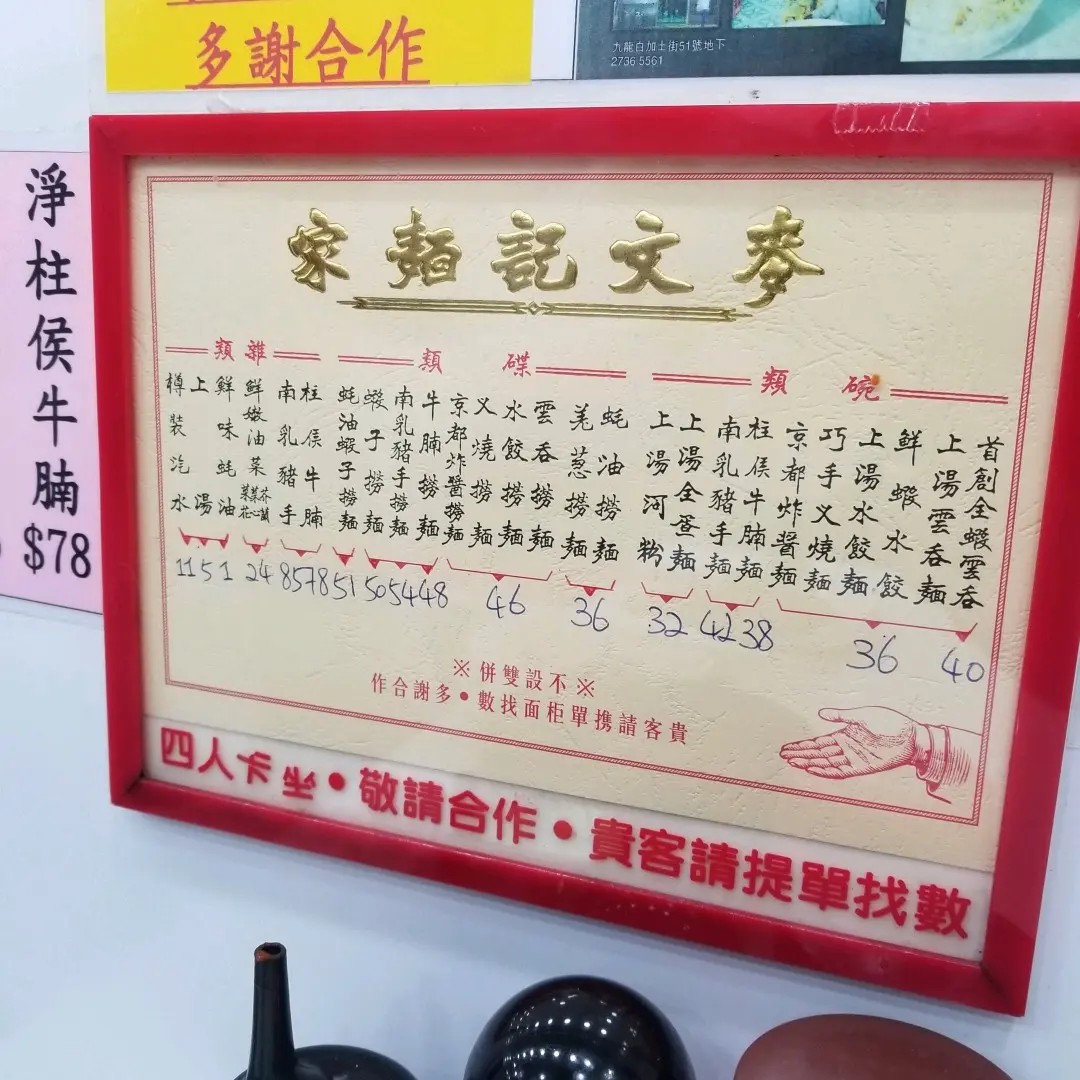 多謝合作
九龍白加士街51號地下
2736 5561
淨柱侯牛腩
$78
麥文記麵家
碗類
首創全蝦雲吞
上湯雲吞麵
鮮蝦水餃
上湯水餃麵
巧手叉燒麵
京都炸醬麵
柱侯牛腩麵
南乳豬手麵
上湯全蛋麵
上湯河粉
40
36
38
42
32
碟類
蚝油撈麵
羗葱撈麵
雲吞撈麵
水餃撈麵
叉燒撈麵
京都炸醬撈麵
牛腩撈麵
南乳豬手撈麵
蝦子撈麵
蚝油蝦子撈麵
36
46
48
54
50
51
雜類
柱侯牛腩
南乳豬手
鮮嫩油菜
芥蘭
菜心
菜花
鮮味蚝油
上湯
樽裝汽水
78
85
24
1
5
11
※不設雙併※
貴客請携單柜面找數•多謝合作
四人卡坐•敬請合作•貴客請提單找數